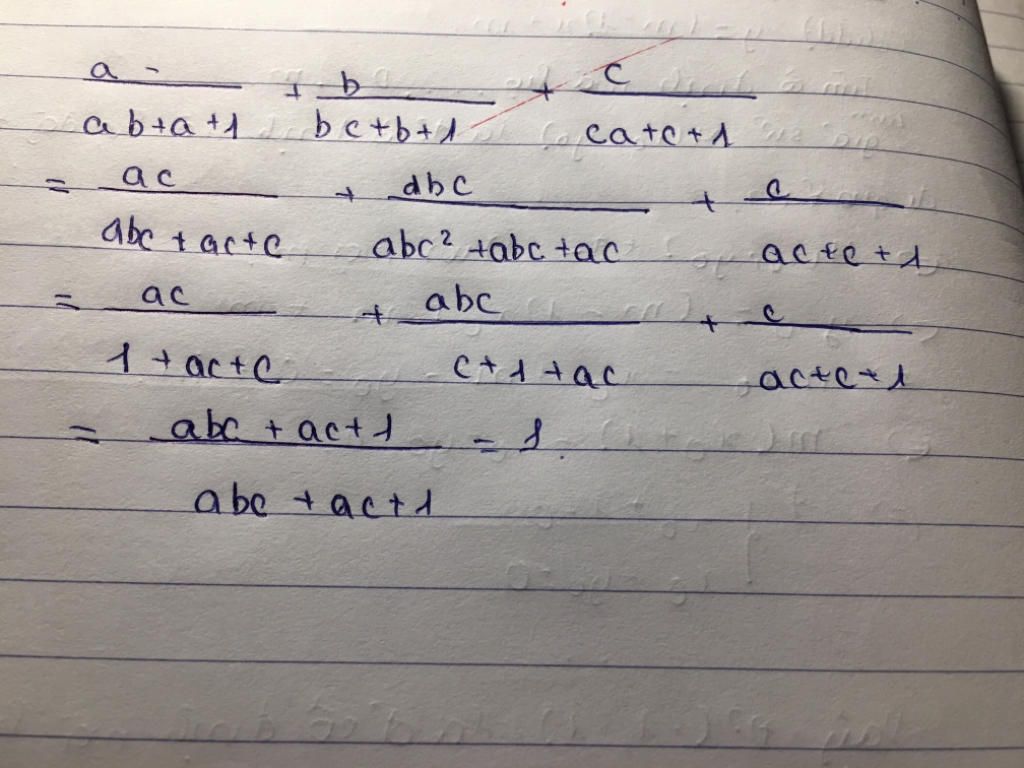 a/(ab+a+1) + b/(bc+b+1) + c/(ca+c+1)
= ac/(abc+ac+c) + abc/(abc²+abc+ac) + c/(ac+c+1)
= ac/(1+ac+c) + abc/(c+1+ac) + c/(ac+c+1)
= (abc+ac+1)/(abc+ac+1) = 1.